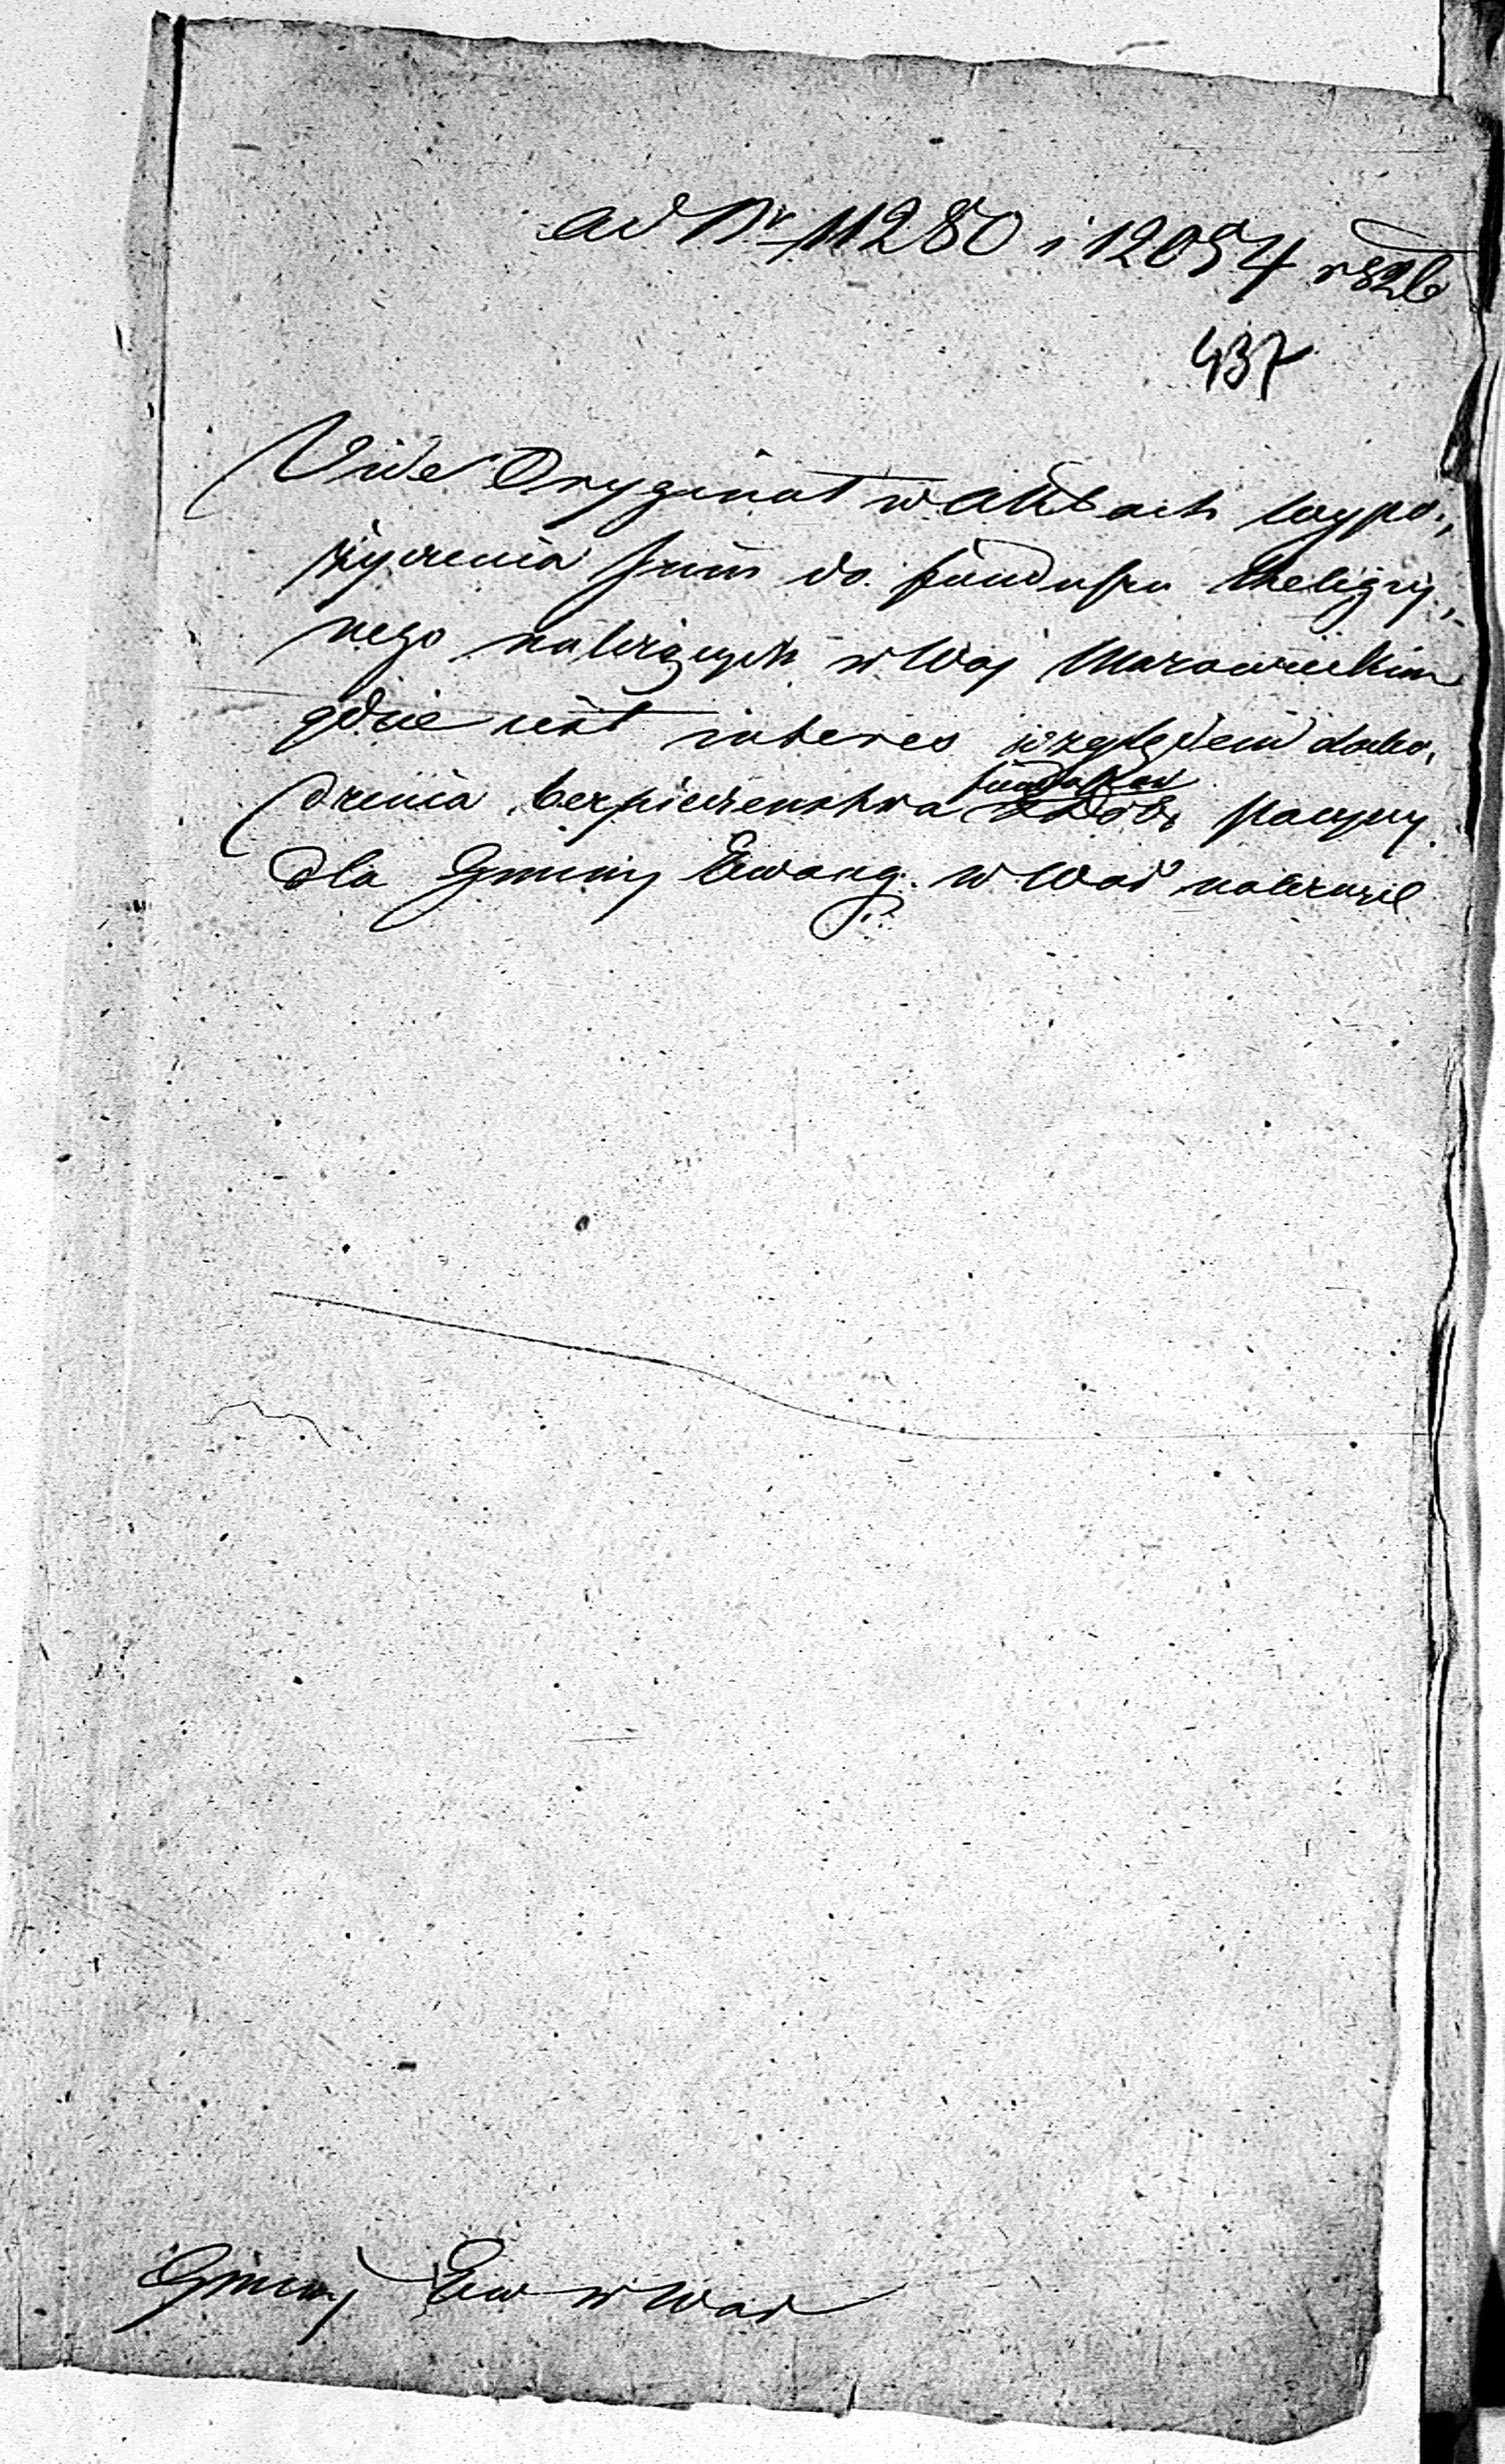 ad Nr 11280 i 12054 r 826
437
Vide Oryginał w aktach wypo„
życzenia sum do funduszu Religij„
nego należących w Woj Mazowieckim
gdzie jest interes względem docho„
dzenia bezpieczeństwa funduszów
dla Gminy Ewang. w War
Gminy Ew w War